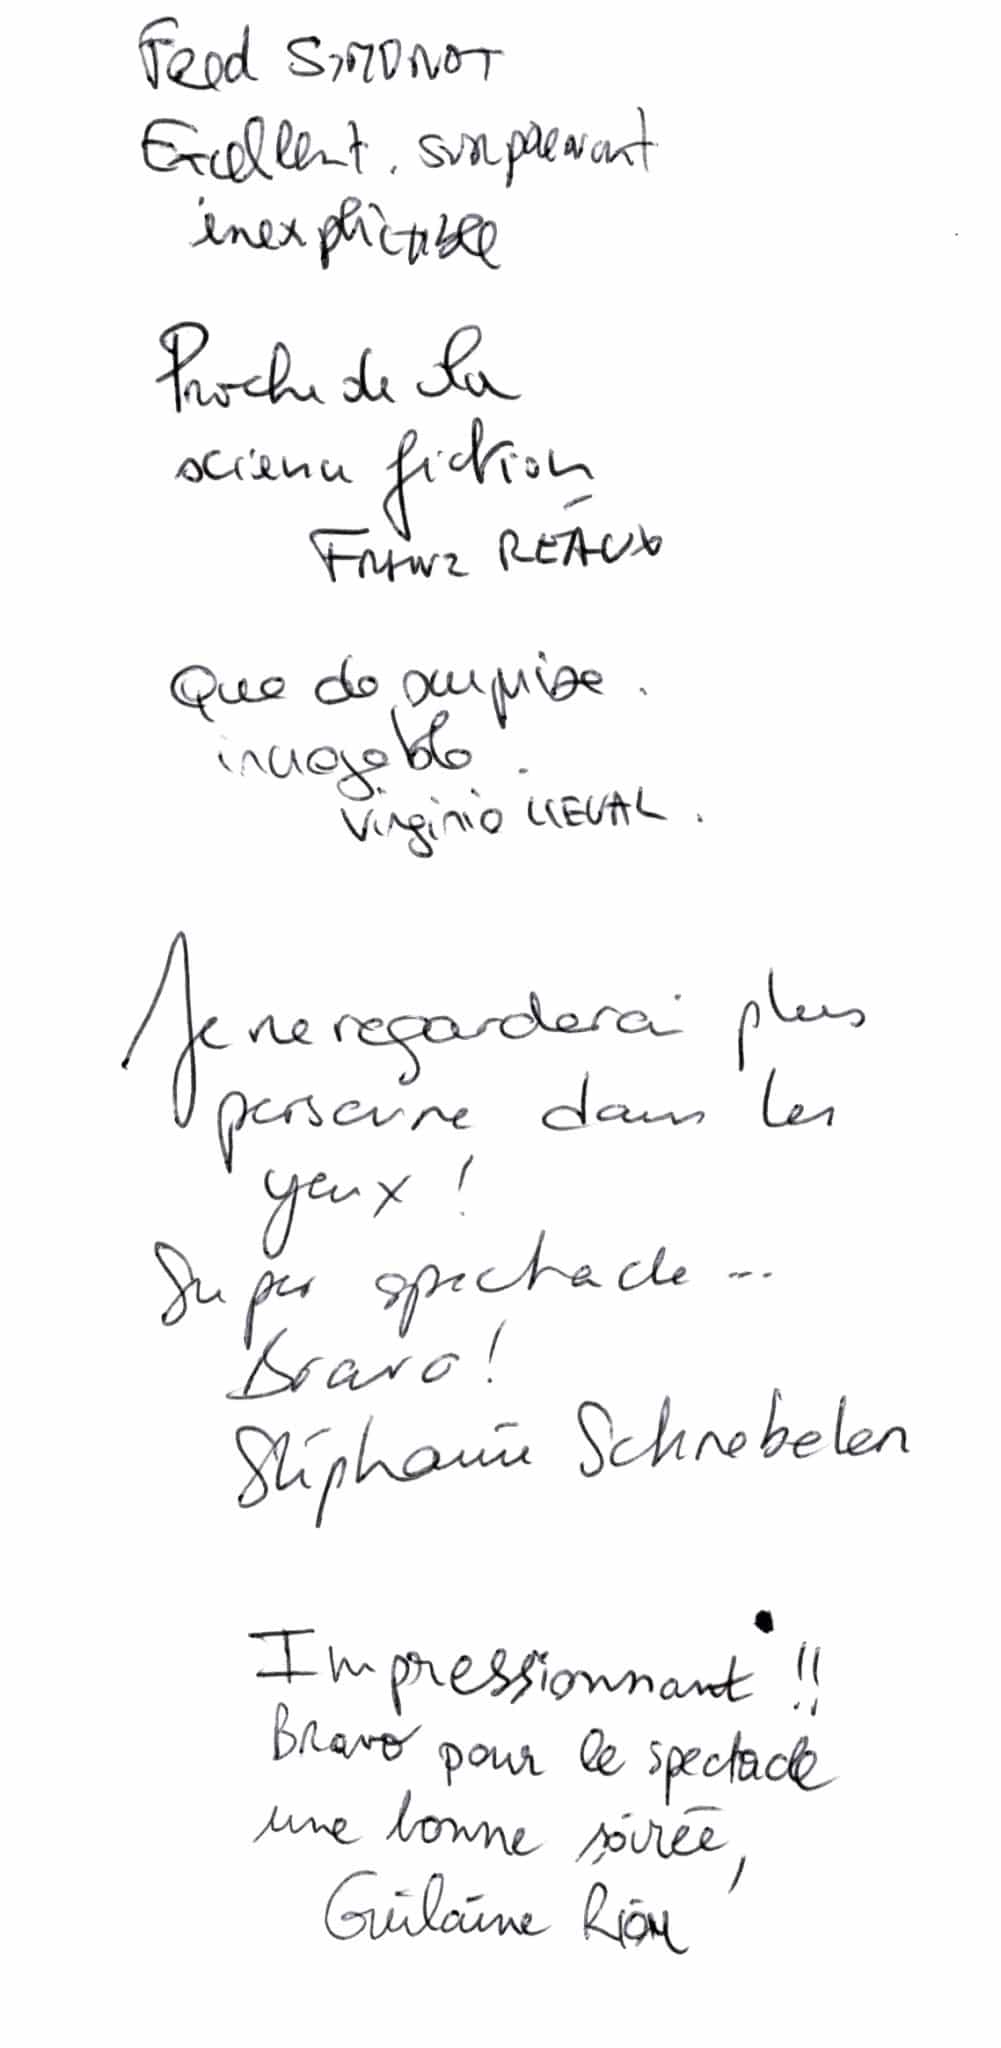 Fred SIMONOT
Excellent. surprenant
inexplicable
Proche de la
science fiction
Franz REAUX
Que de surprise.
incroyable.
Virginie LIEVAL.
Je ne regarderai plus
personne dans les
yeux !
Super spectacle ...
Bravo !
Stéphanie Schnebelen
Impressionnant !!
Bravo pour le spectacle
une bonne soirée,
Guilaine Riou